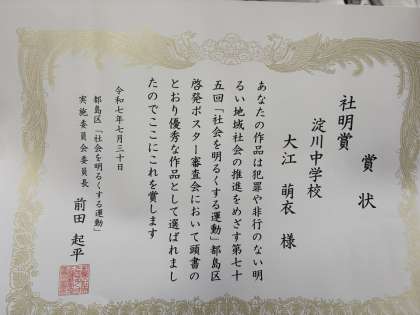 賞状
社明賞
淀川中学校
大江 萌衣 様
あなたの作品は犯罪や非行のない明
るい地域社会の推進をめざす第七十
五回「社会を明るくする運動」都島区
啓発ポスター審査会において頭書の
とおり優秀な作品として選ばれまし
たのでここにこれを賞します
令和七年七月三十日
都島区「社会を明るくする運動」
実施委員会委員長 前田 起平